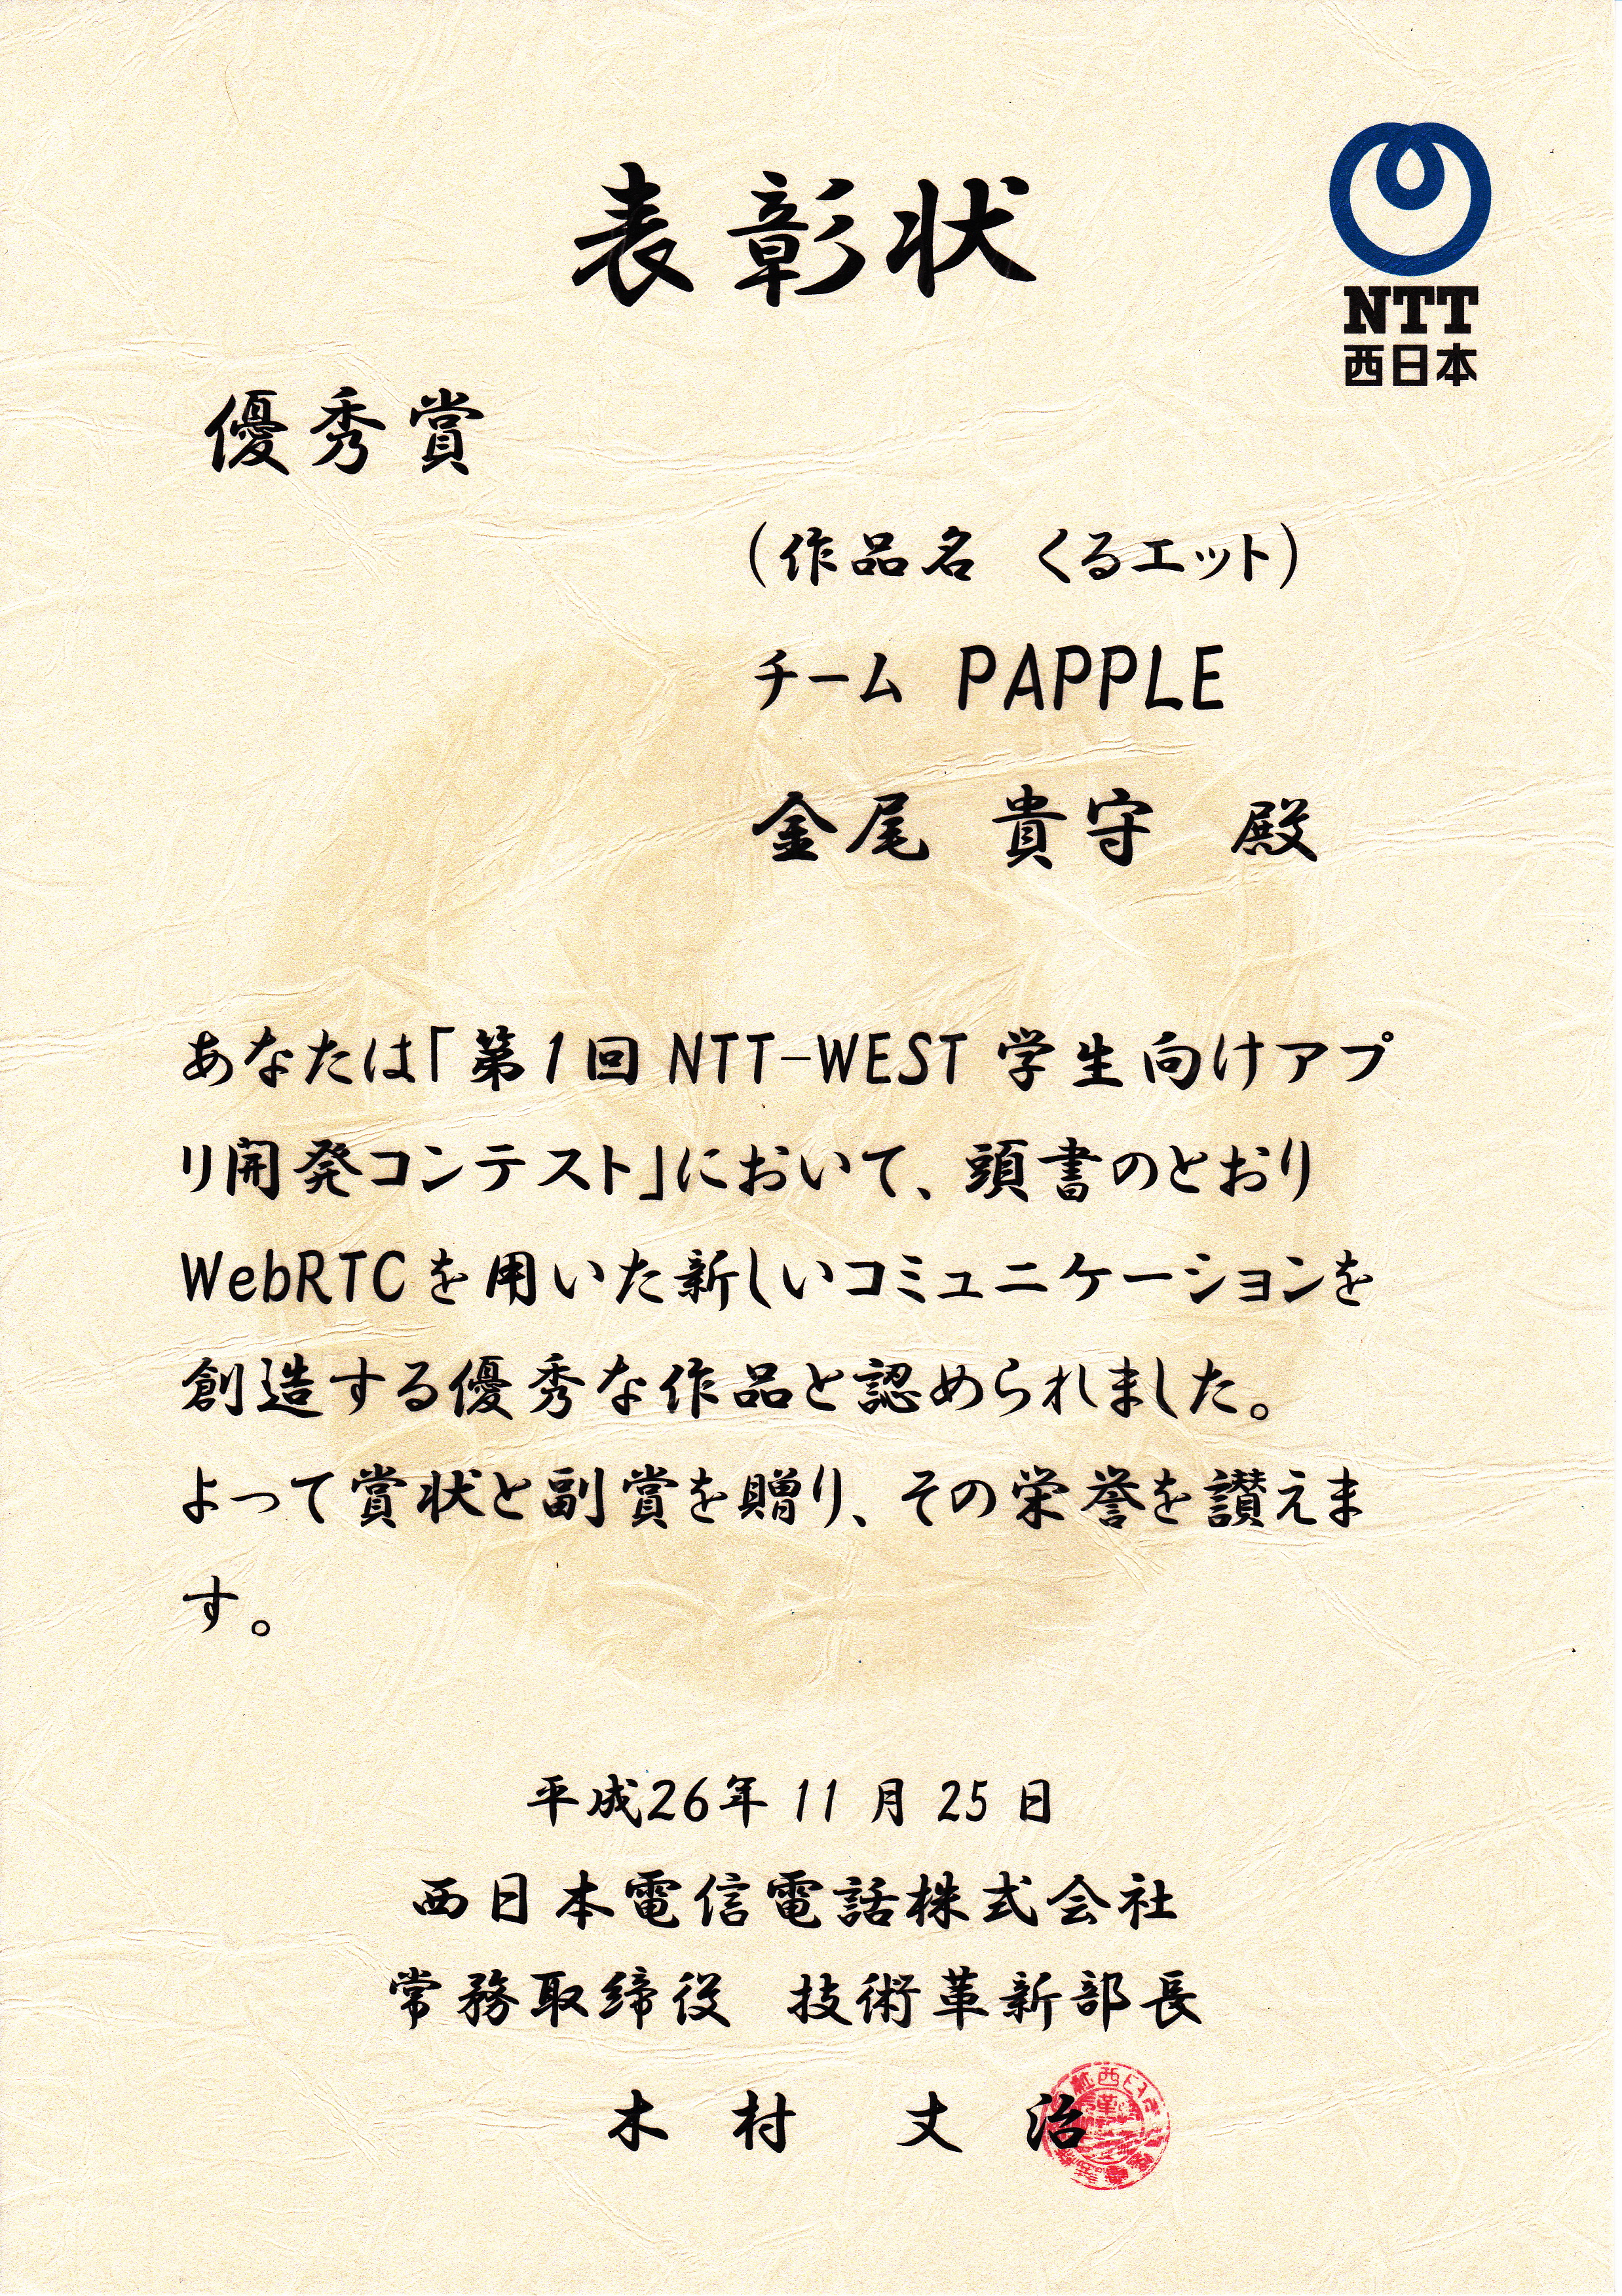 表彰状
NTT
西日本
優秀賞
(作品名　くるエット)
チーム　PAPPLE
金尾　貴守　殿
あなたは「第1回 NTT-WEST 学生向けアプ
リ開発コンテスト」において、頭書のとおり
WebRTCを用いた新しいコミュニケーションを
創造する優秀な作品と認められました。
よって賞状と副賞を贈り、その栄誉を讃えま
す。
平成26年 11 月 25 日
西日本電信電話株式会社
常務取締役　技術革新部長
木村　丈治